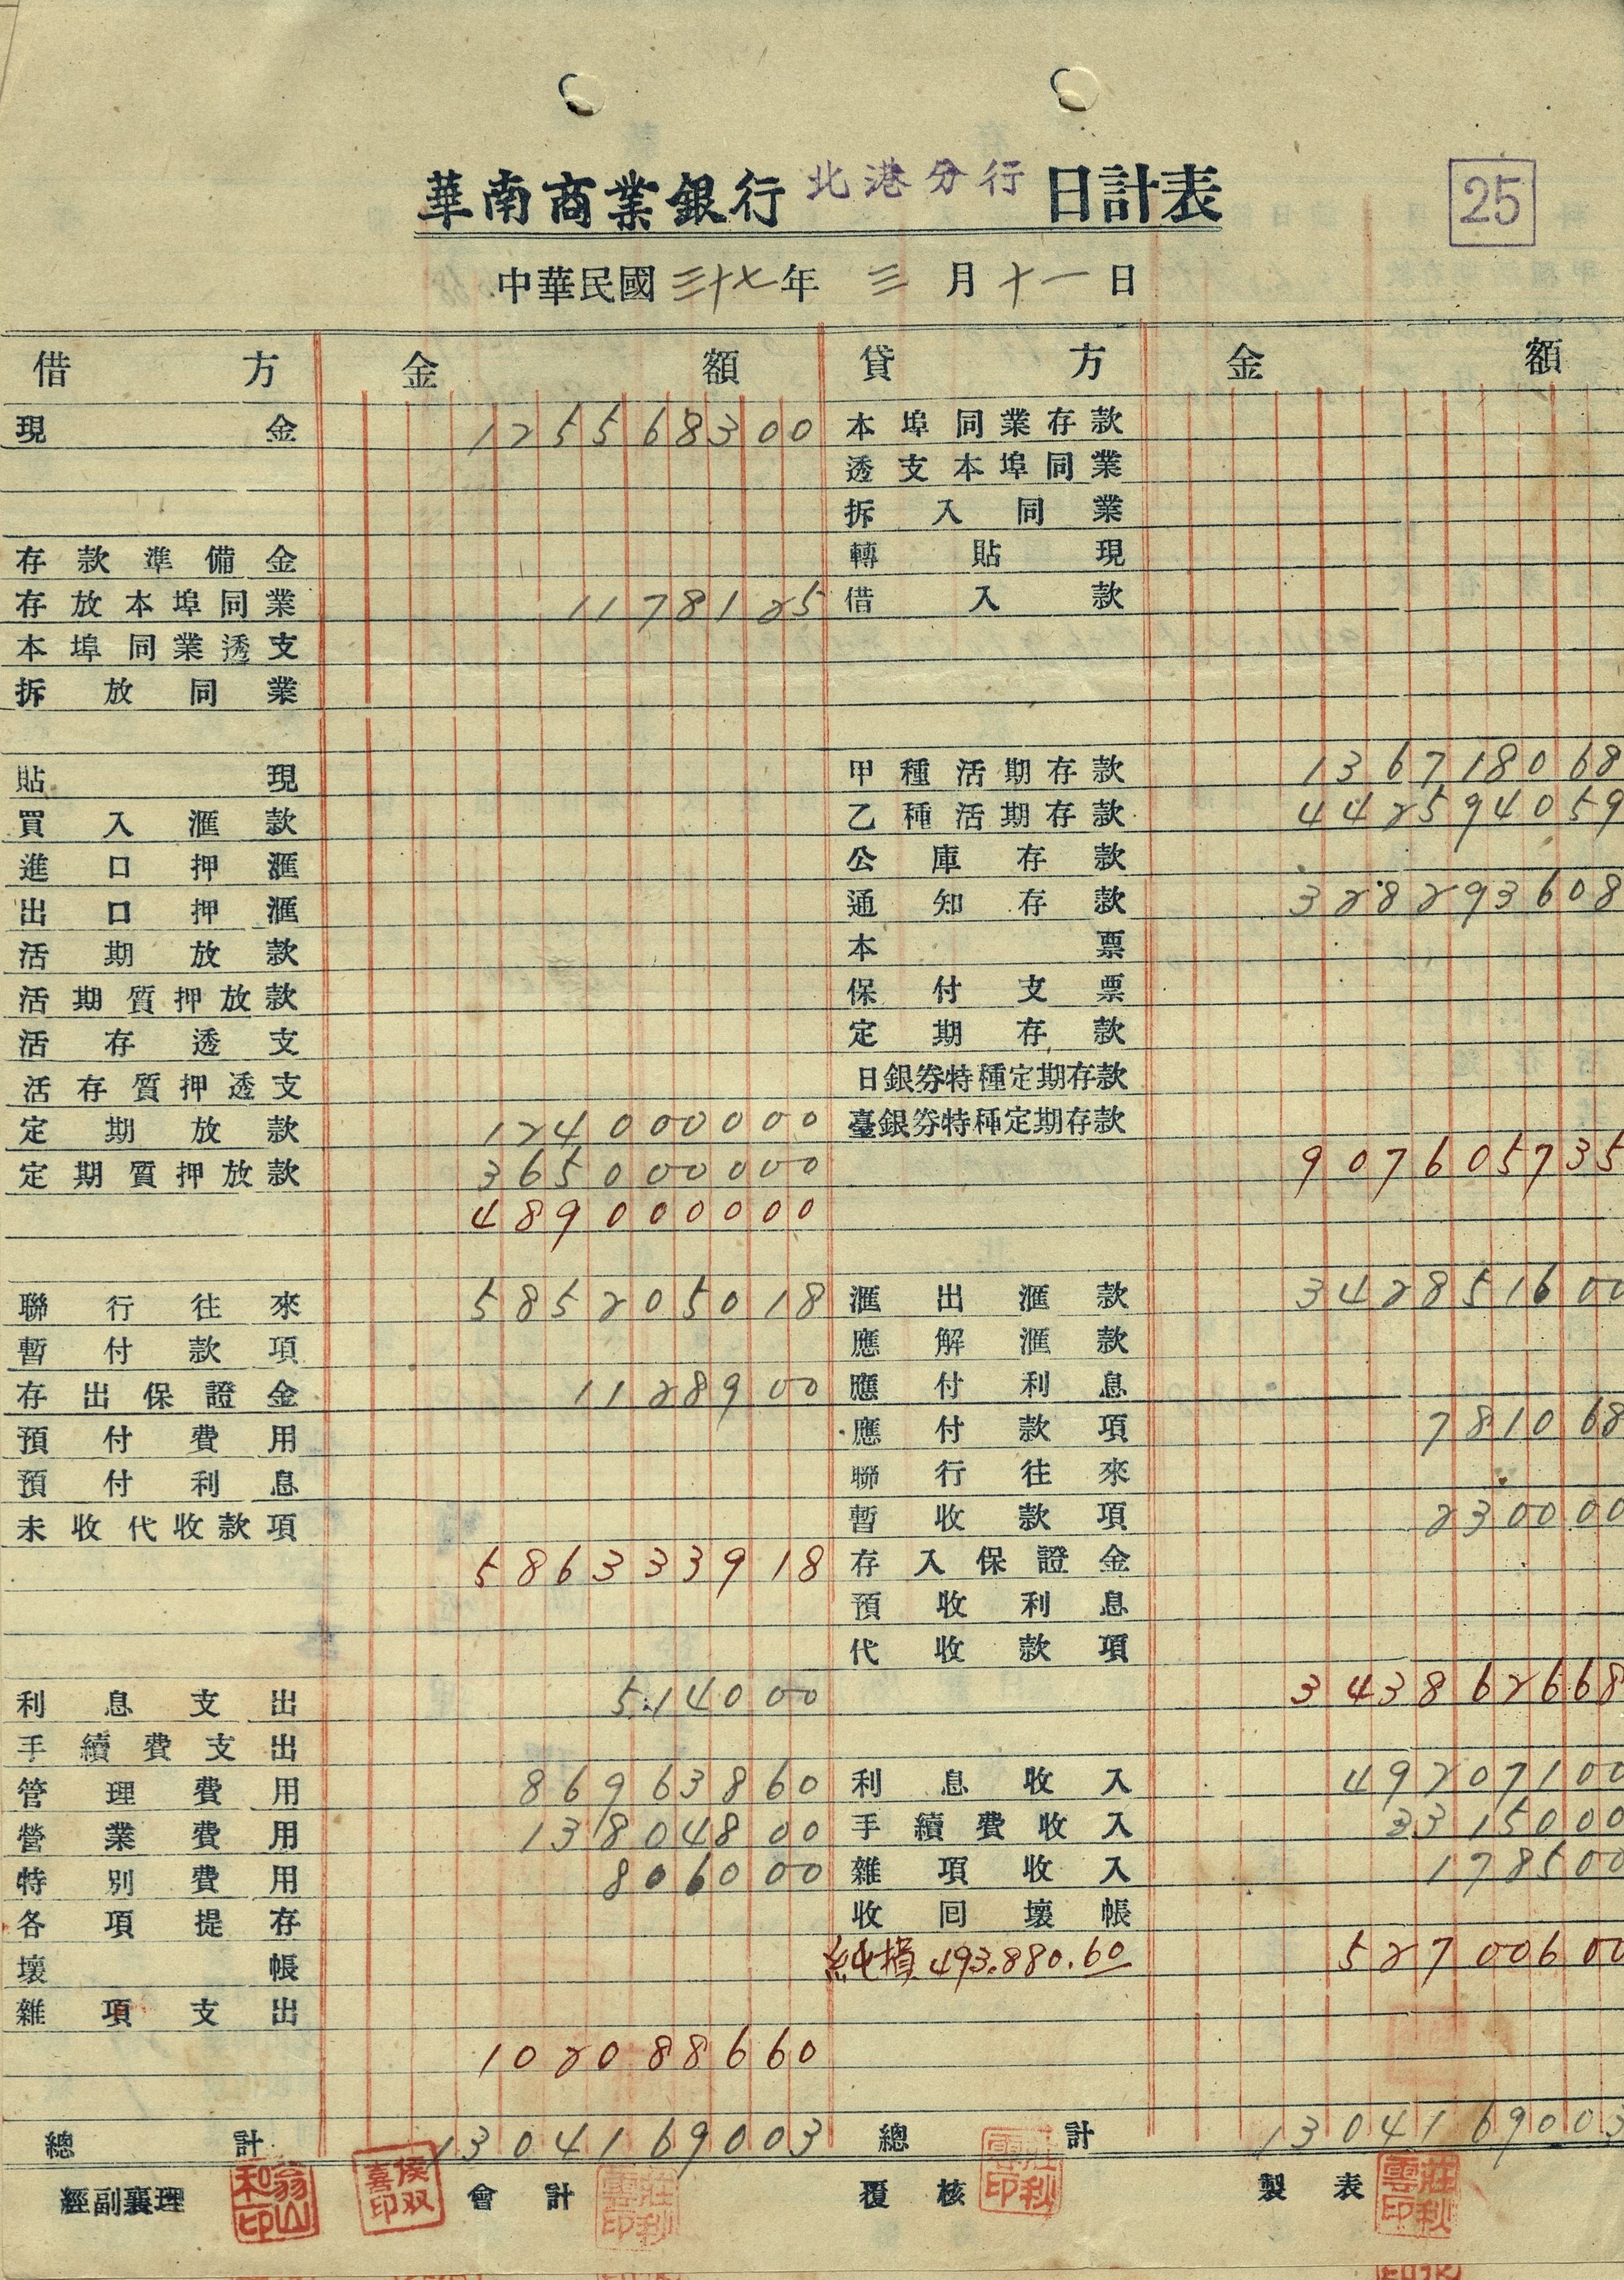 華南商業銀行 北港分行 日計表
25
中華民國 三十七 年 三 月 十一 日
借方 金額 貸方 金額
現金 125568300 本埠同業存款
透支本埠同業
拆入同業
存款準備金 轉貼現
存放本埠同業 1178125 借入款
本埠同業透支
拆放同業
貼現 甲種活期存款 136718068
買入滙款 乙種活期存款 442594059
進口押滙 公庫存款
出口押滙 通知存款 328293608
活期放款 本票
活期質押放款 保付支票
活存透支 定期存款
活存質押透支 日銀券特種定期存款
定期放款 124000000 臺銀券特種定期存款
定期質押放款 365000000 907605735
489000000
聯行往來 585205018 滙出滙款 342851600
暫付款項 應解滙款
存出保證金 1128900 應付利息
預付費用 應付款項 781068
預付利息 聯行往來
未收代收款項 暫收款項 230000
586333918 存入保證金
預收利息
代收款項
利息支出 514000 343862668
手續費支出
管理費用 86963860 利息收入 49207100
營業費用 13804800 手續費收入 3315000
特別費用 806000 雜項收入 178500
各項提存 收回壞帳
壞帳 純損 493,880.60 52700600
雜項支出
102088660
總計 1304169003 總計 1304169003
經副襄理 翁山和印 侯双喜印 會計 莊秋雲印 覆核 莊秋雲印 製表 莊秋雲印